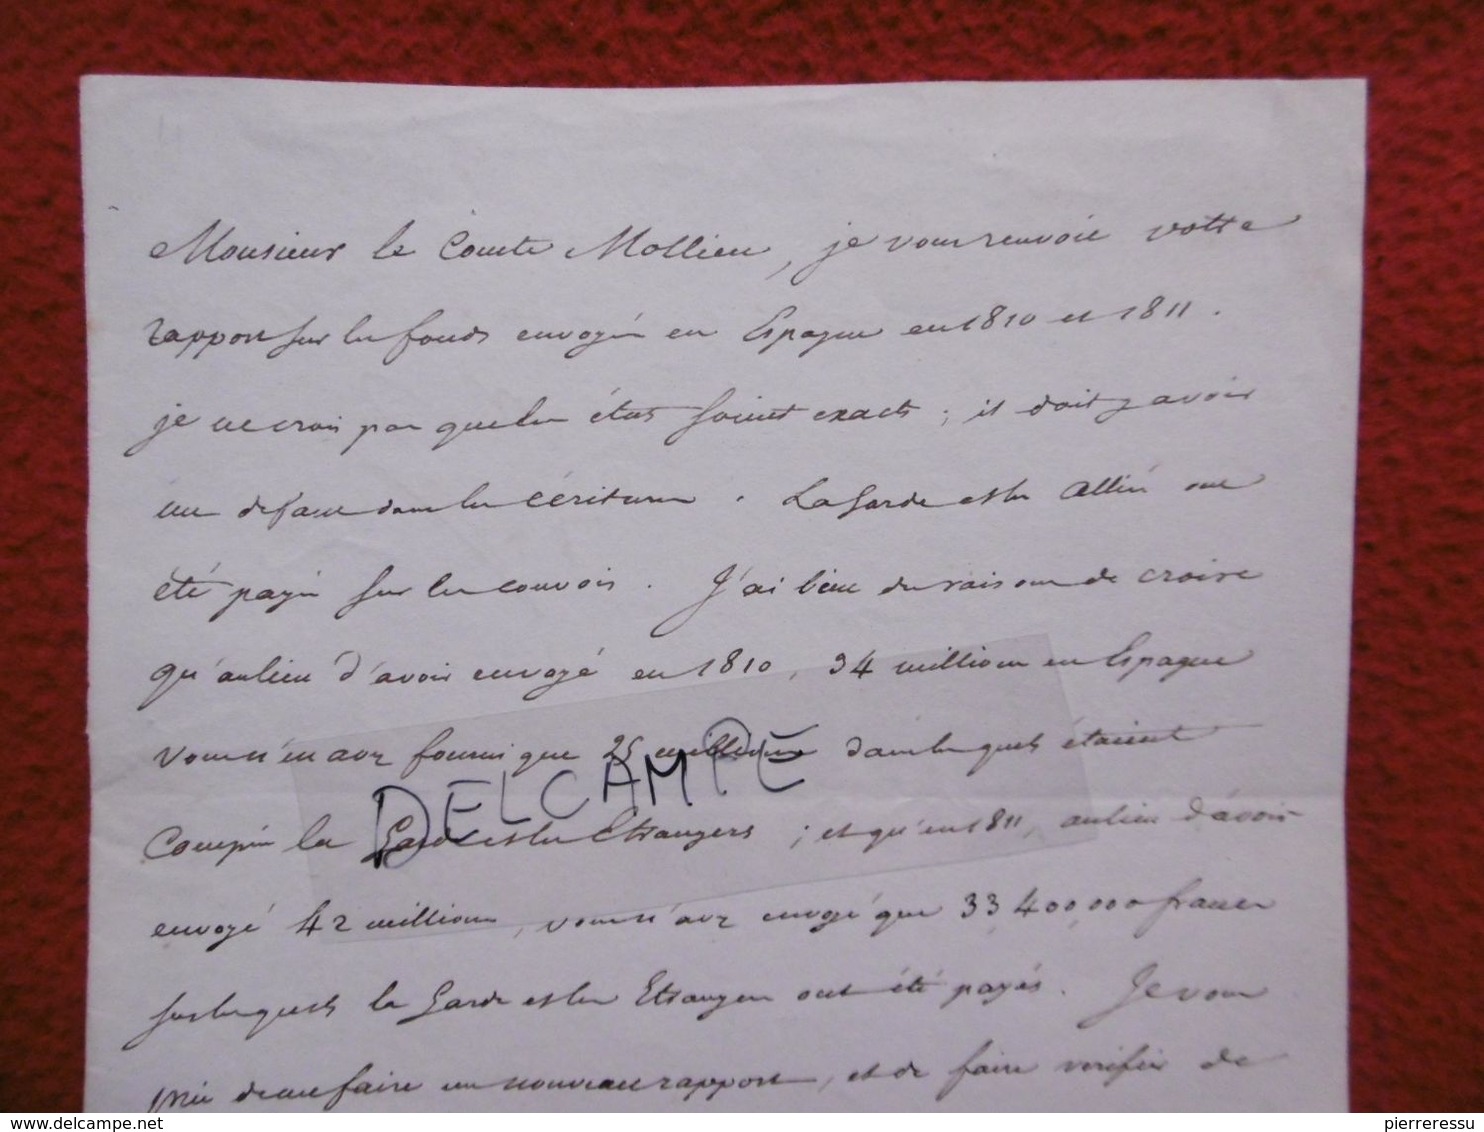 Monsieur le Comte Mollien, je vous renvoie votre
rapport sur les fonds envoyés en Espagne en 1810 et 1811.
je ne crois pas que les états soient exacts ; il doit y avoir
une defaut dans les écritures. La Garde et les Alliés ont
été payés sur les convois. J'ai bien du raison de croire
qu'au lieu d'avoir envoyé en 1810, 34 millions en Espagne
vous n'en avez fourni que 25 millions dans lesquels étaient
Compris la Garde et les Etrangers ; et qu'en 1811, au lieu d'avoir
envoyé 42 millions, vous n'avez envoyé que 33,400,000 francs
sur lesquels la Garde et les Etrangers ont été payés. Je vous
prie de me faire un nouveau rapport, et de faire verifier de
DELCAMPE
www.delcampe.net
pierreressu